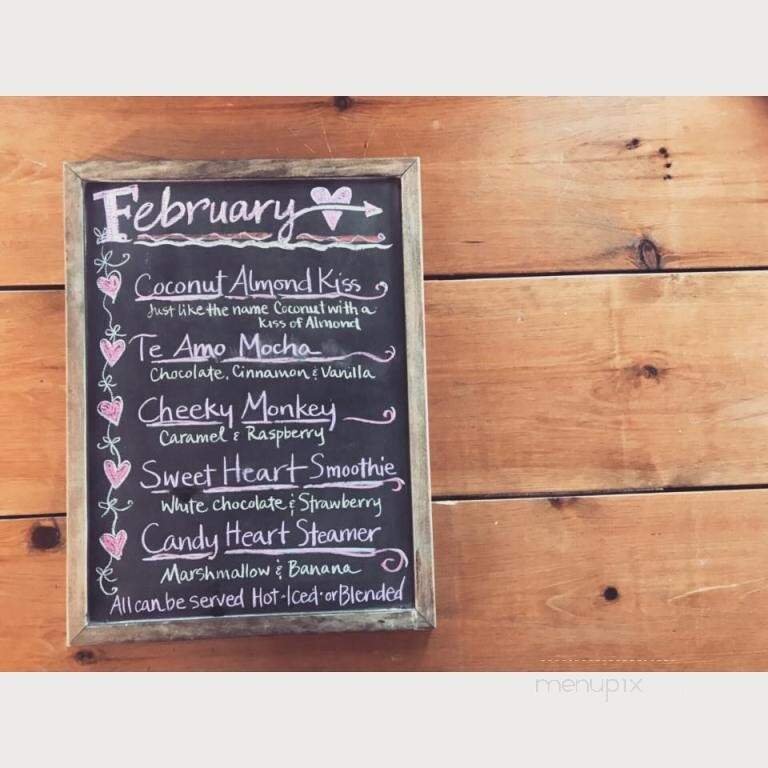 February
Coconut Almond Kiss
Just like the name Coconut with a
kiss of Almond
Te Amo Mocha
Chocolate, Cinnamon & Vanilla
Cheeky Monkey
Caramel & Raspberry
Sweet Heart Smoothie
White chocolate & Strawberry
Candy Heart Steamer
Marshmallow & Banana
All can be served Hot · Iced · or Blended
menupix